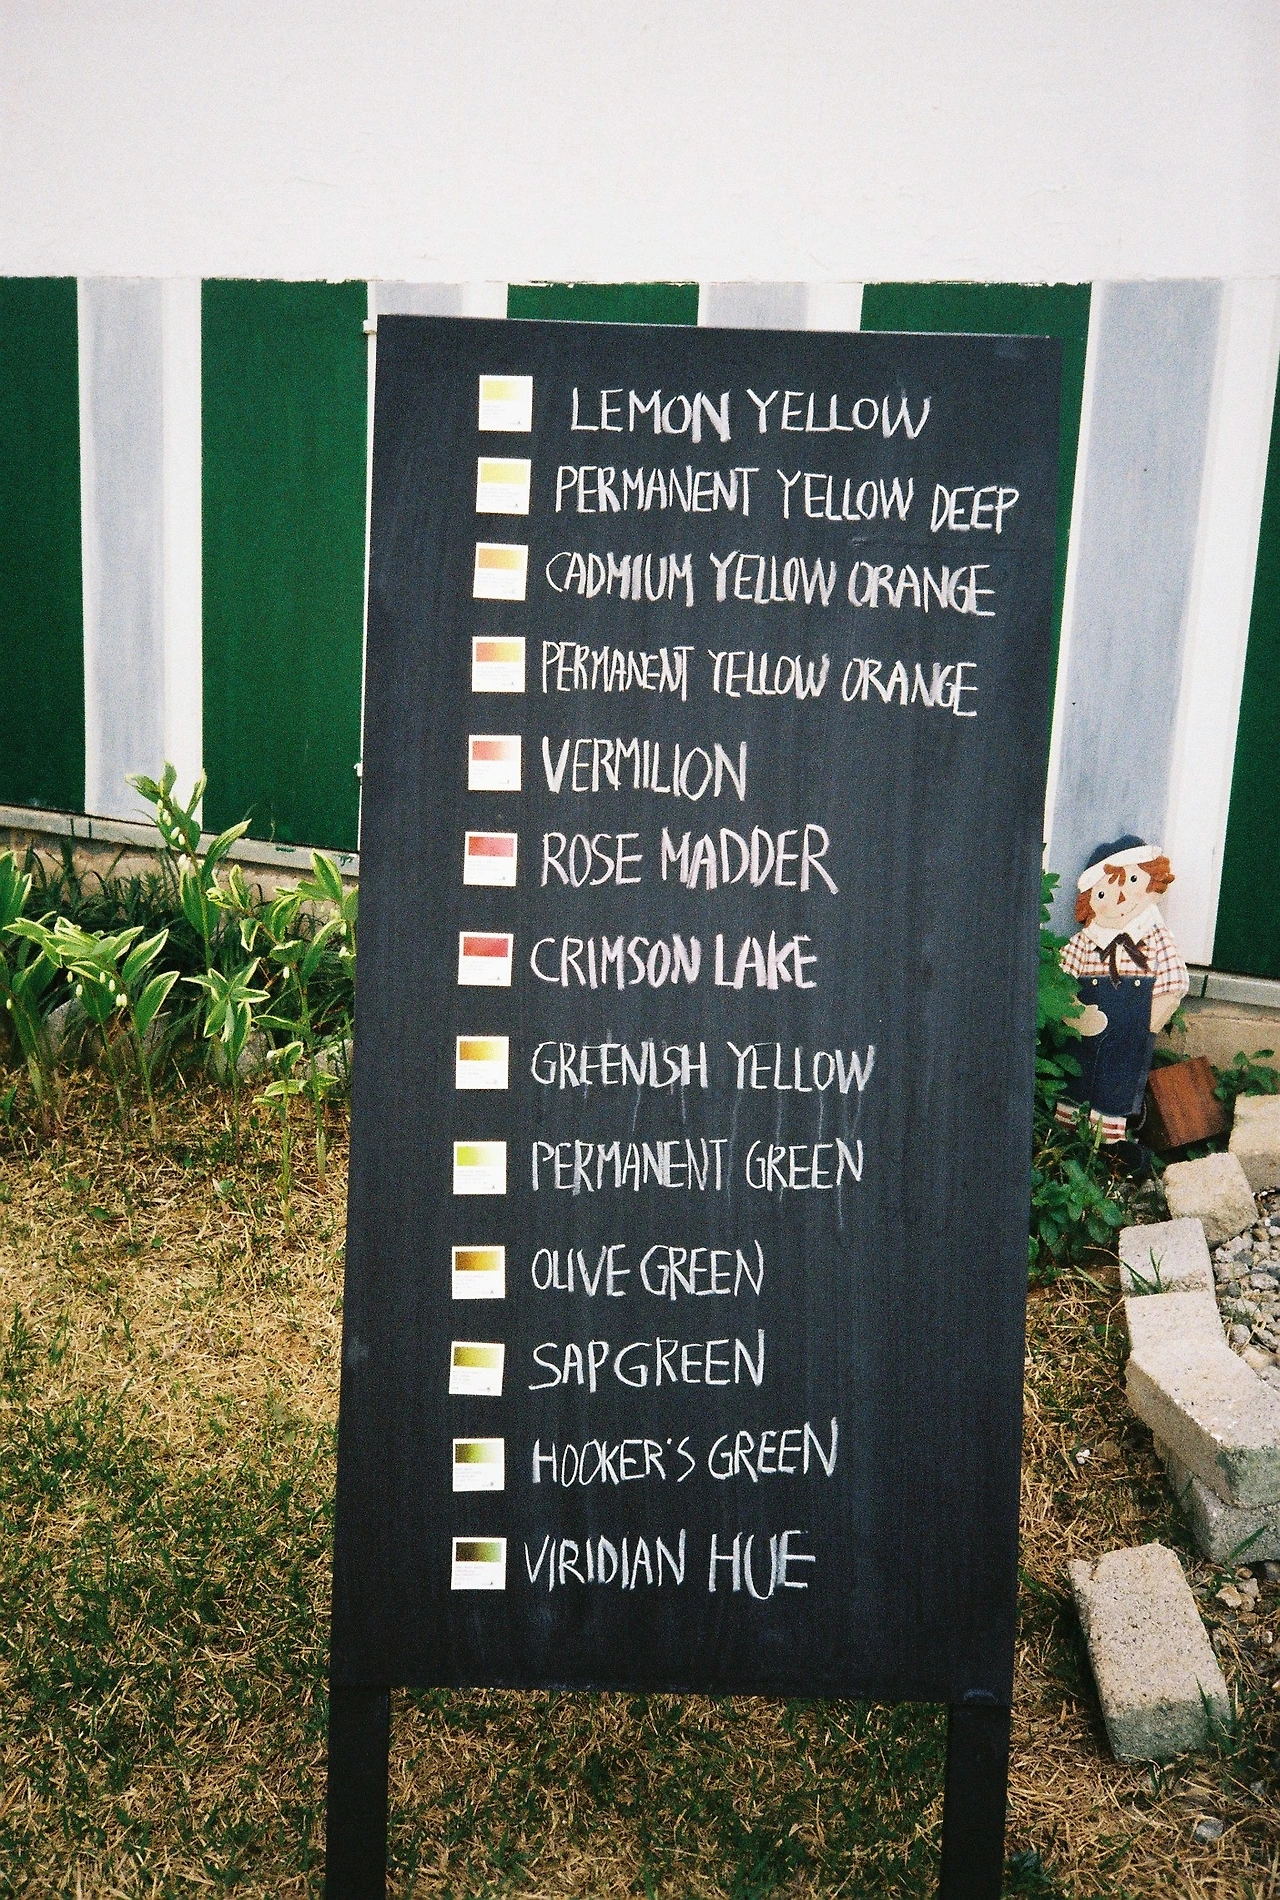 LEMON YELLOW
PERMANENT YELLOW DEEP
CADMIUM YELLOW ORANGE
PERMANENT YELLOW ORANGE
VERMILION
ROSE MADDER
CRIMSON LAKE
GREENISH YELLOW
PERMANENT GREEN
OLIVE GREEN
SAP GREEN
HOOKER'S GREEN
VIRIDIAN HUE